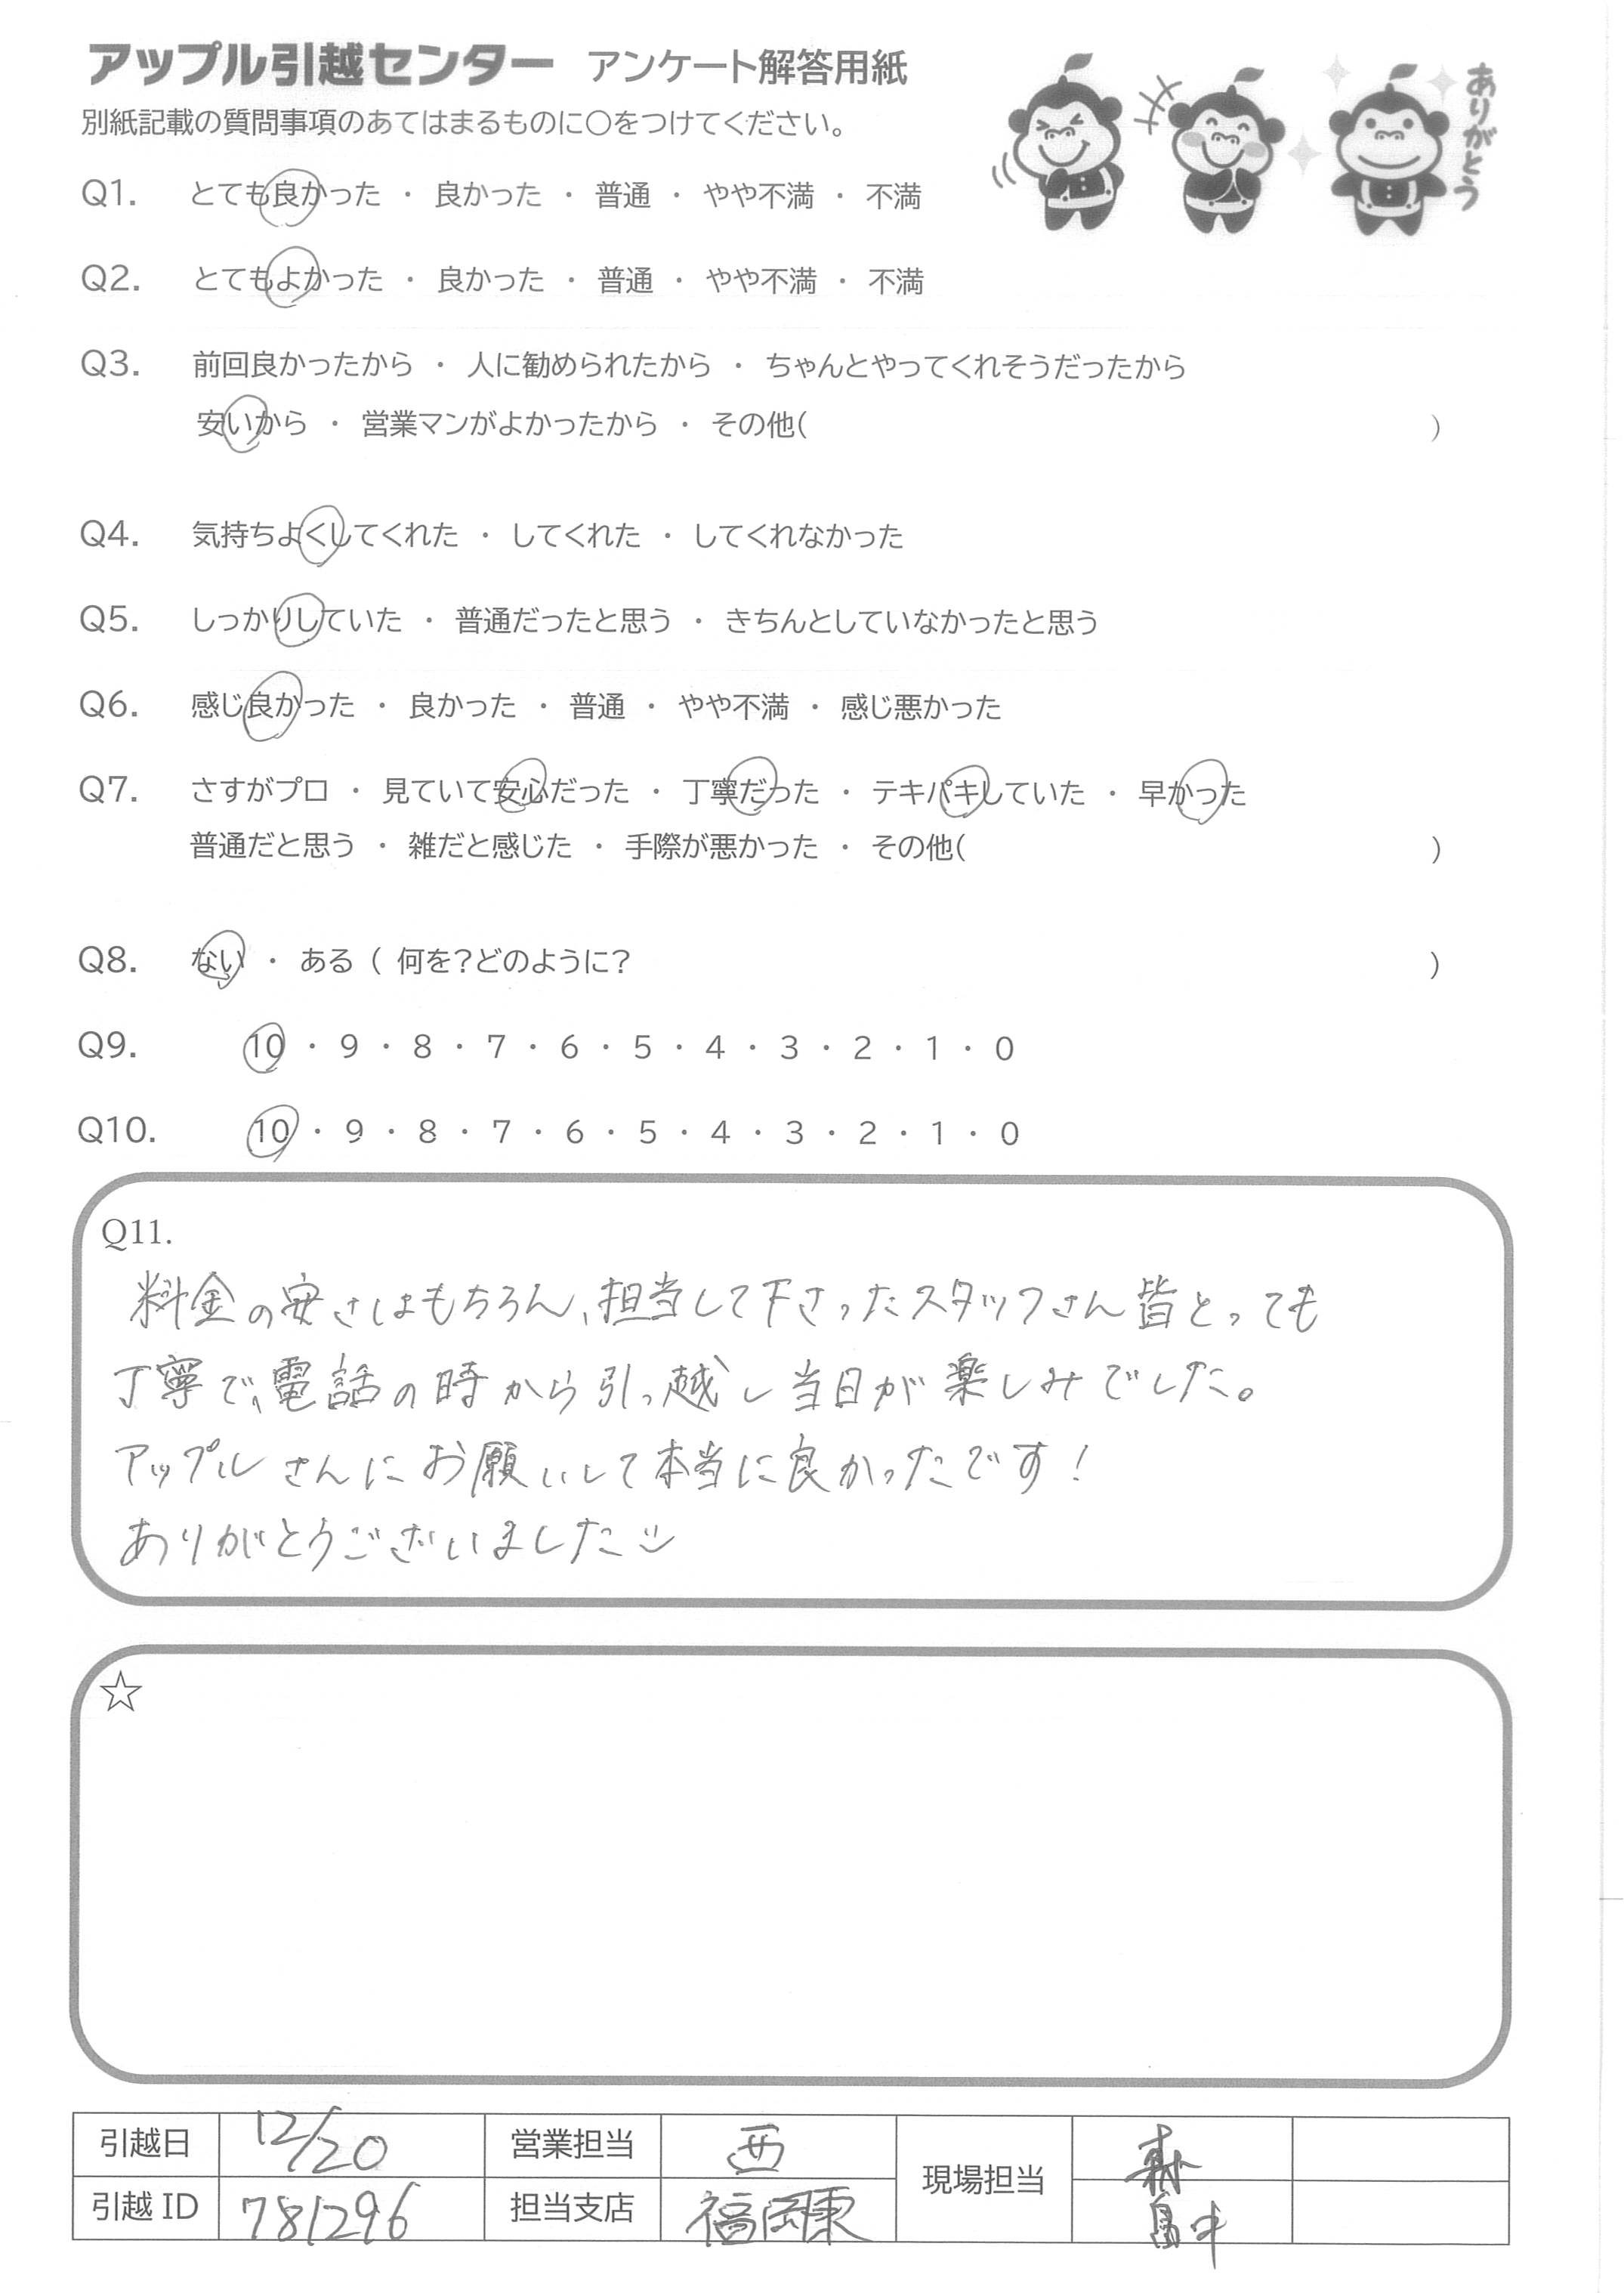 アップル引越センター アンケート解答用紙
ありがとう
別紙記載の質問事項のあてはまるものに○をつけてください。
Q1. とても良かった ・ 良かった ・ 普通 ・ やや不満 ・ 不満
Q2. とてもよかった ・ 良かった ・ 普通 ・ やや不満 ・ 不満
Q3. 前回良かったから ・ 人に勧められたから ・ ちゃんとやってくれそうだったから
安いから ・ 営業マンがよかったから ・ その他( )
Q4. 気持ちよくしてくれた ・ してくれた ・ してくれなかった
Q5. しっかりしていた ・ 普通だったと思う ・ きちんとしていなかったと思う
Q6. 感じ良かった ・ 良かった ・ 普通 ・ やや不満 ・ 感じ悪かった
Q7. さすがプロ ・ 見ていて安心だった ・ 丁寧だった ・ テキパキしていた ・ 早かった
普通だと思う ・ 雑だと感じた ・ 手際が悪かった ・ その他( )
Q8. ない ・ ある ( 何を?どのように? )
Q9. 10 ・ 9 ・ 8 ・ 7 ・ 6 ・ 5 ・ 4 ・ 3 ・ 2 ・ 1 ・ 0
Q10. 10 ・ 9 ・ 8 ・ 7 ・ 6 ・ 5 ・ 4 ・ 3 ・ 2 ・ 1 ・ 0
Q11.
料金の安さはもちろん、担当して下さったスタッフさん皆とっても
丁寧で、電話の時から引っ越し当日が楽しみでした。
アップルさんにお願いして本当に良かったです!
ありがとうございました
☆
引越日 12/20 営業担当 西 現場担当
引越ID 781296 担当支店 福岡東 畠中